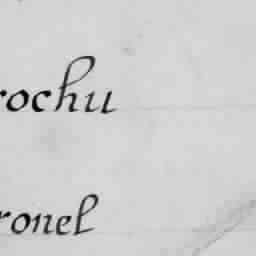 rochu
ronel